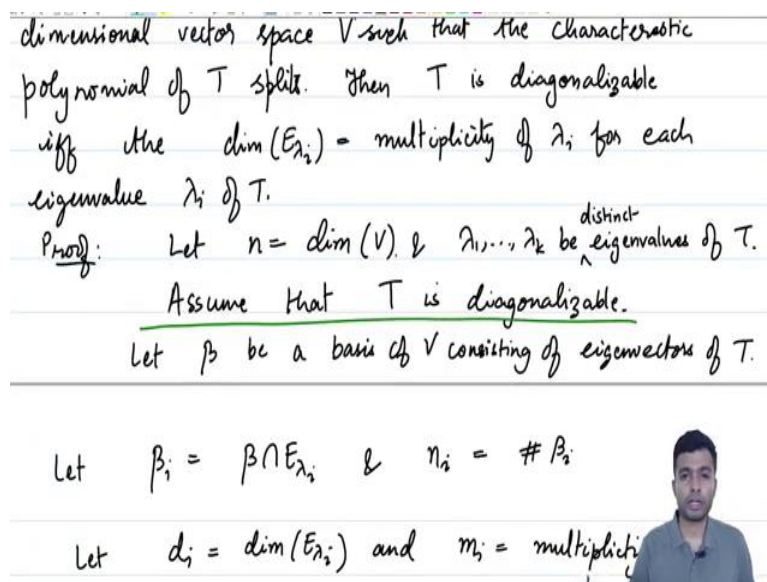 dimensional vector space V such that the characterestic
polynomial of T splits. Then T is diagonalizable
iff the dim(E_{λ_i}) = multiplicity of λ_i for each
eigenvalue λ_i of T.
Proof: Let n = dim(V) & λ_1,..., λ_k be distinct eigenvalues of T.
Assume that T is diagonalizable.
Let β be a basis of V consisting of eigenvectors of T.
Let β_i = β∩E_{λ_i} & n_i = # β_i
Let d_i = dim(E_{λ_i}) and m_i = multiplicity